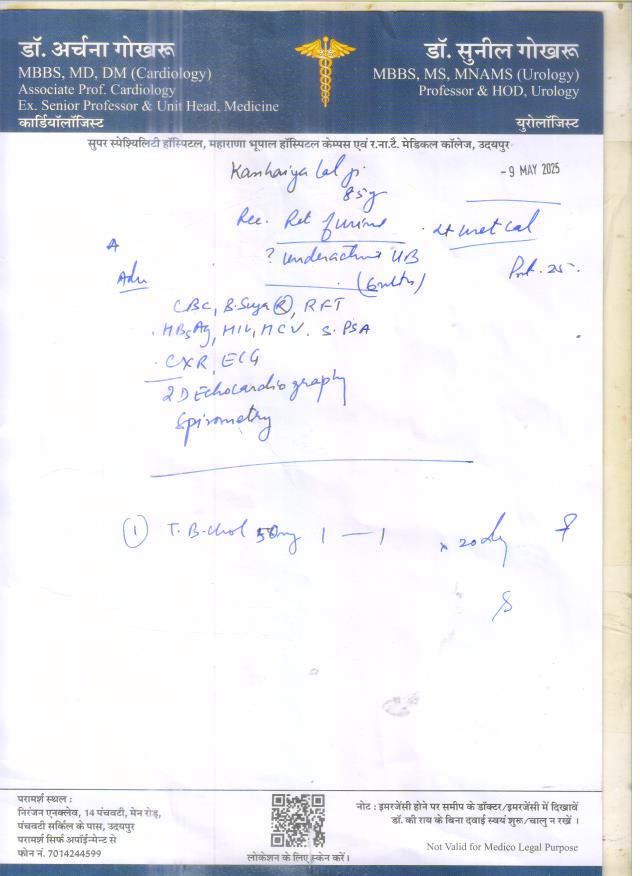 डॉ. अर्चना गोखरू
MBBS, MD, DM (Cardiology)
Associate Prof. Cardiology
Ex. Senior Professor & Unit Head, Medicine
कार्डियॉलॉजिस्ट
डॉ. सुनील गोखरू
MBBS, MS, MNAMS (Urology)
Professor & HOD, Urology
युरोलॉजिस्ट
सुपर स्पेशियलिटी हॉस्पिटल, महाराणा भूपाल हॉस्पिटल केम्पस एवं र.ना.टै. मेडिकल कॉलेज, उदयपुर
Kanhaiya Lal ji
- 9 MAY 2025
85y
Rec. Ret of urine
? underactive UB
Adv
CBC, B.Sugar (R), RFT
HBsAg, HIV, HCV. S. PSA
CXR, ECG
2D Echocardiography
Spirometry
① T. B-chol 50mg 1 — 1 x 20 day
परामर्श स्थल :
निरंजन एनक्लेव, 14 पंचवटी, मेन रोड़,
पंचवटी सर्किल के पास, उदयपुर
परामर्श सिर्फ अपॉईन्मेन्ट से
फोन नं. 7014244599
लोकेशन के लिए स्केन करें।
नोट : इमरजेंसी होने पर समीप के डॉक्टर/इमरजेंसी में दिखावें
डॉ. की राय के बिना दवाई स्वयं शुरू/चालु न रखें ।
Not Valid for Medico Legal Purpose